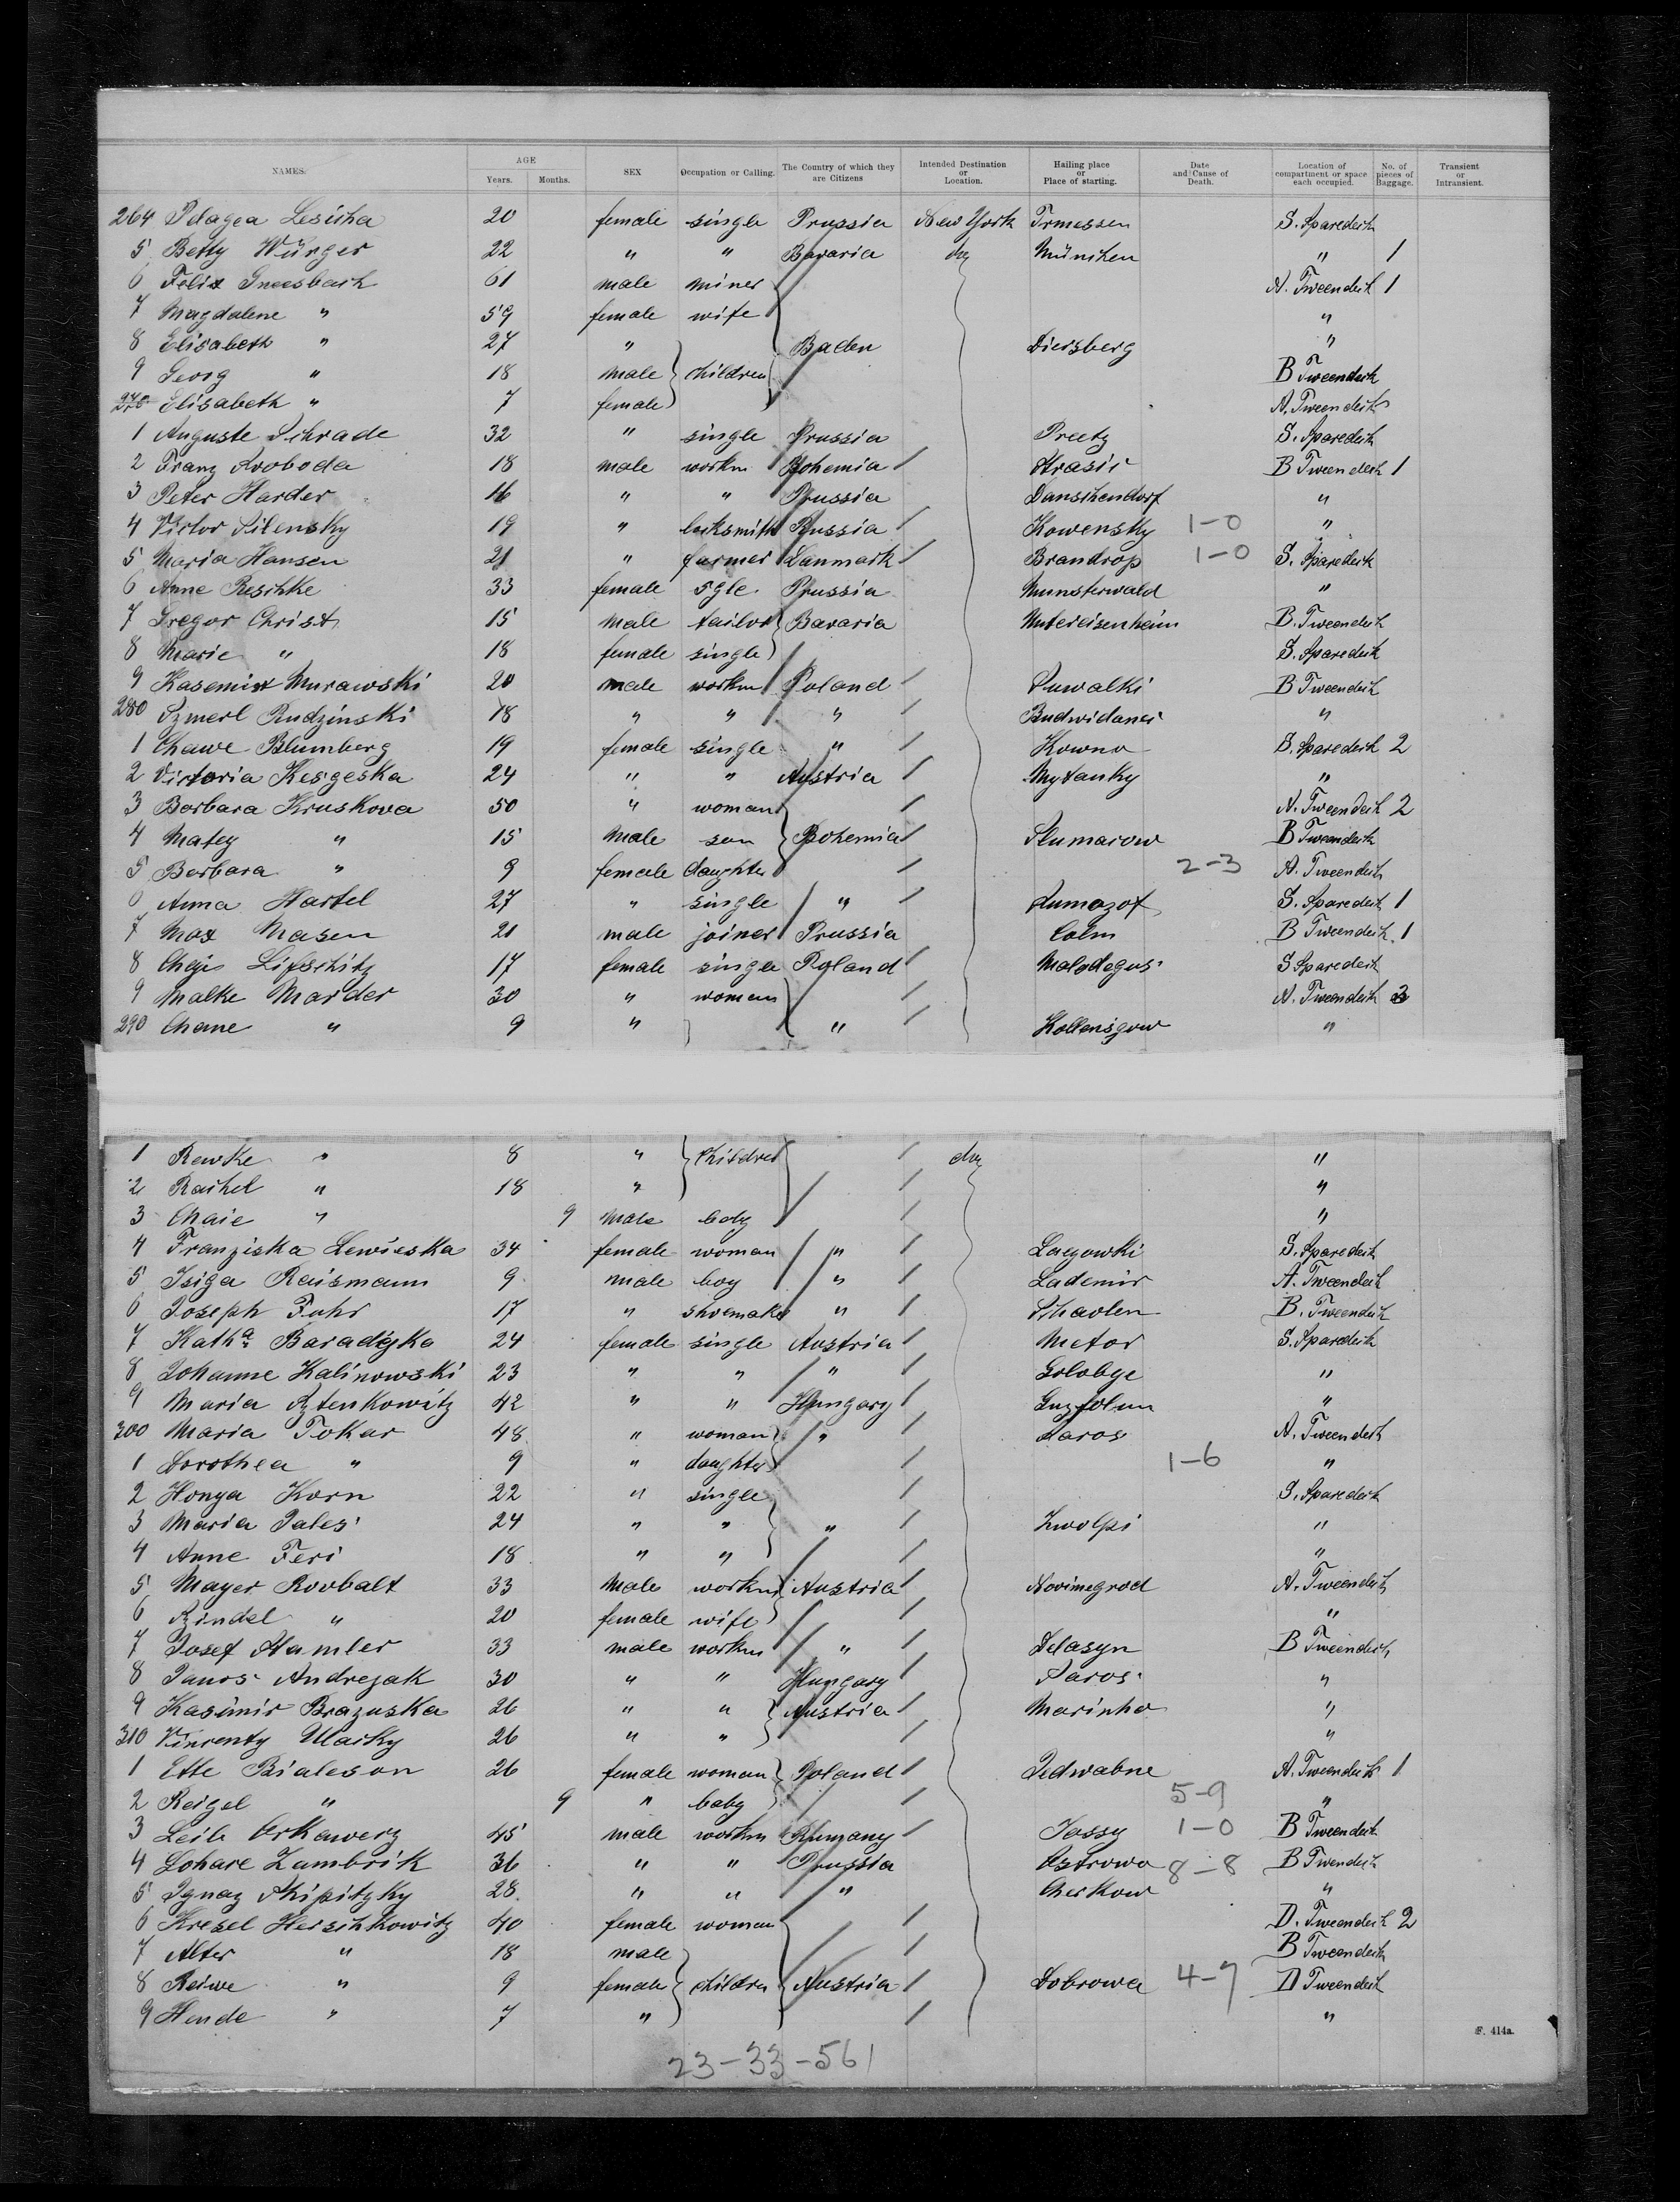 NAMES. AGE Years. Months. SEX Occupation or Calling. The Country of which they are Citizens Intended Destination or Location. Hailing place or Place of starting. Date and Cause of Death. Location of compartment or space each occupied. No. of pieces of Baggage. Transient or Intransient.
264 Pelagea Lesicha 20 female single Prussia New York Trmessen S. Sparedeck
5 Betty Würger 22 " " Bavaria do München " 1
6 Felix Gneesbach 61 male miner A. Tweendeck 1
7 Magdalene " 59 female wife "
8 Elisabeth " 27 " Baden Diersberg "
9 Georg " 18 male children B Tweendeck
270 Elisabeth " 7 female A. Tweendeck
1 Auguste Schrade 32 " single Prussia Preetz S. Sparedeck
2 Franz Svoboda 18 male workm Bohemia / Strasic B Tweendeck 1
3 Peter Harder 16 " " Prussia Danschendorf "
4 Victor Silensky 19 " locksmith Russia / Kowensky 1-0 "
5 Maria Hansen 21 " farmer Danmark / Brandrop 1-0 S. Sparedeck
6 Anne Reschke 33 female sgle. Prussia Munsterwald "
7 Gregor Christ 15 male tailor Bavaria Untereisenheim B. Tweendeck
8 Marie " 18 female single S. Sparedeck
9 Kasemir Murawski 20 male workm Poland / Suwalki B Tweendeck
280 Szmerl Rudzinski 18 " " " / Budwidanci "
1 Chawe Blumberg 19 female single " / Kowno S. Sparedeck 2
2 Victoria Kesgeska 24 " " Austria / Mytanky "
3 Borbara Kruskova 50 " woman / A. Tweendeck 2
4 Matey " 15 male son Bohemia / Slumarow B Tweendeck
5 Borbara " 9 female daughter / 2-3 A. Tweendeck
6 Anna Hartel 27 " single " / Rumazof S. Sparedeck 1
7 Max Masen 21 male joiner Prussia Colm B Tweendeck 1
8 Chaje Lifschitz 17 female single Poland / Malodegus S Sparedeck
9 Malke Marder 30 " woman / A. Tweendeck 3
290 Chane " 9 " " / Kollensgow "
1 Rewke " 8 " children / do "
2 Rachel " 18 " / "
3 Chaie " 9 male baby / "
4 Franziska Lewieska 34 female woman " / Lagowki S. Sparedeck
5 Isiga Raismann 9 male boy " / Lademir A. Tweendeck
6 Joseph Fuhr 17 " shoemaker " / Schavlen B. Tweendeck
7 Katha Baradejka 24 female single Austria / Metor S. Sparedeck
8 Johanne Kalinowski 23 " " " / Golobye "
9 Maria Sztenkowitz 42 " " Hungary / "
300 Maria Tokar 48 " woman " / Saros A. Tweendeck
1 Dorothea " 9 " daughter / 1-6 "
2 Honya Korn 22 " single / S. Sparedeck
3 Maria Pales 24 " " " / Zwolpi "
4 Anne Feri 18 " " / "
5 Mayer Rovbalt 33 male workm Austria / Novimegrod A. Tweendeck
6 Szindel " 20 female wife / "
7 Josef Hamler 33 male workm " / Delasyn B Tweendeck
8 Janos Andrejak 30 " " Hungary / Saros "
9 Kasimir Brazuska 26 " " Austria / Marinho "
310 Vincenty Ulacky 26 " " / "
1 Ette Bialeson 26 female woman Poland / Jedwabne A. Tweendeck 1
2 Reigel " 9 " baby / 5-9 "
3 Leib Orkawerz 45 male workm Rumany / Jassy 1-0 B Tweendeck
4 Lohare Zambrik 36 " " Prussia Ostrowo 8-8 B Twendeck
5 Ignaz Skipitzky 28 " " " Cherkow "
6 Kresel Herschkowitz 40 female woman / D. Tweendeck 2
7 Alter " 18 male / B Tweendeck
8 Reiwe " 9 female children Austria / Dobrowa 4-7 D Tweendeck
9 Hende " 7 " / "
F. 414a.
23-33-561